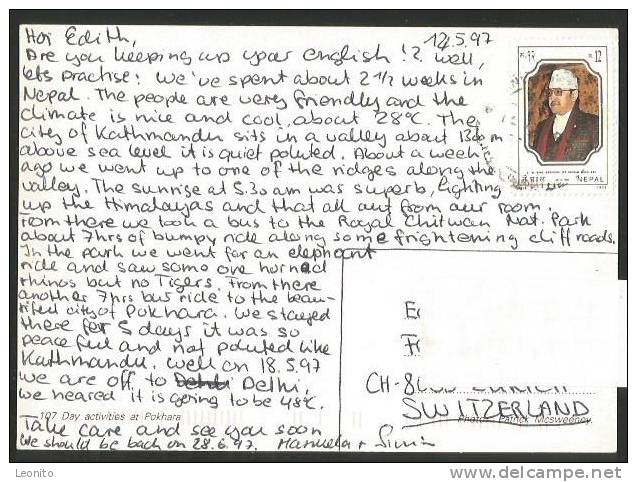 Hoi Edith,
12.5.97
Are you keeping up your english!? Well,
lets practise: We've spent about 2 1/2 weeks in
Nepal. The people are very friendly and the
climate is nice and cool, about 28°C. The
city of Kathmandu sits in a valley about 1300 m
above sea level it is quiet poluted. About a week
ago we went up to one of the ridges along the
valley. The sunrise at 5.30 am was superb, lighting
up the Himalayas and that all out from our room.
From there we took a bus to the Royal Chitwan Nat. Park
about 7hrs of bumpy ride along some frightening cliff roads.
In the park we went for an elephant
ride and saw some one horned
rhinos but no Tigers. From there
another 7hrs bus ride to the beau-
tiful city of Pokhara. We stayed
there for 5 days it was so
peaceful and not poluted like
Kathmandu. Well on 18.5.97
we are off to Delhi,
we heared it is going to be 48°C.
Take care and see you soon
We should be back on 28.6.97. Manuela +
12
NEPAL
CH-8
SWITZERLAND
107 Day activities at Pokhara
Photo: Patrick Mcsweeney.
Leonito
delcampe.net